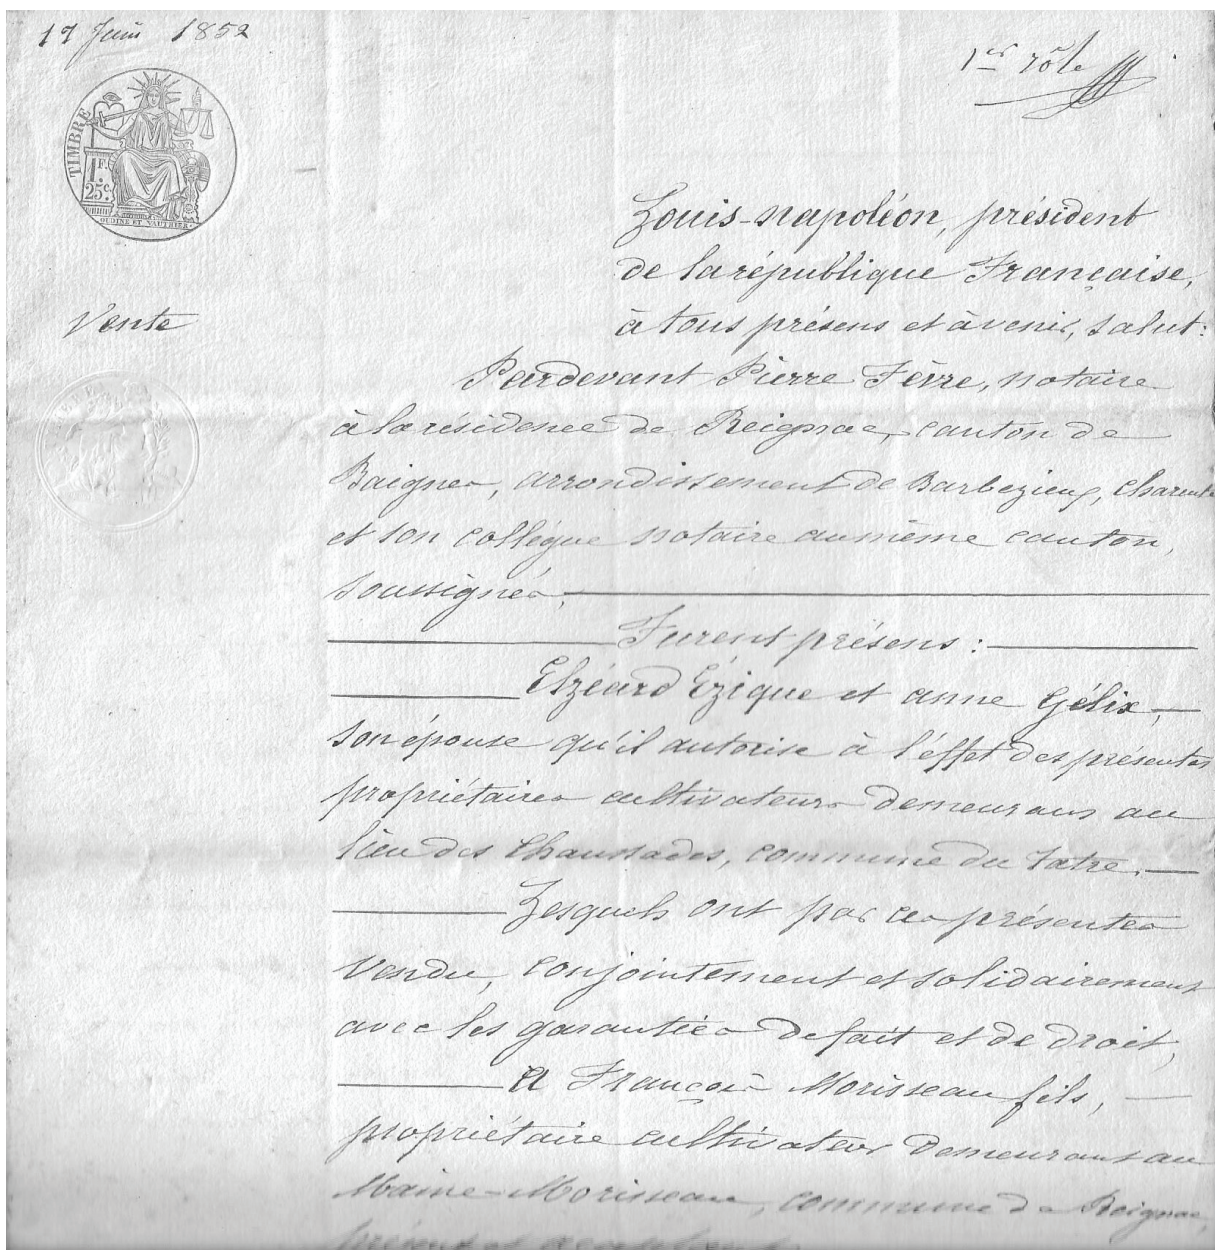 17 Juin 1852
1er rôle
TIMBRE
1F.
25c.
OUDINE ET VAUTHIER
Louis-napoléon, président
de la république Française,
à tous présens et à venir, salut:
Vente
Pardevant Pierre Fèvre, notaire
à la résidence de Reignac, canton de
Baignes, arrondissement de Barbezieux, Charente
et son collégue notaire au même canton,
soussignés,
Furent présens:
Elzéard Ezique et anne Gélix,
son épouse qu'il autorise à l'effet des présentes
propriétaires cultivateurs demeurans au
lieu des Chaussades, commune du Tatre.
Lesquels ont par ces présentes
vendu, conjointement et solidairement
avec les garanties de fait et de droit,
A François Morisseau fils,
propriétaire cultivateur demeurant au
Maine-Morisseau, commune de Reignac,
présent et acceptant